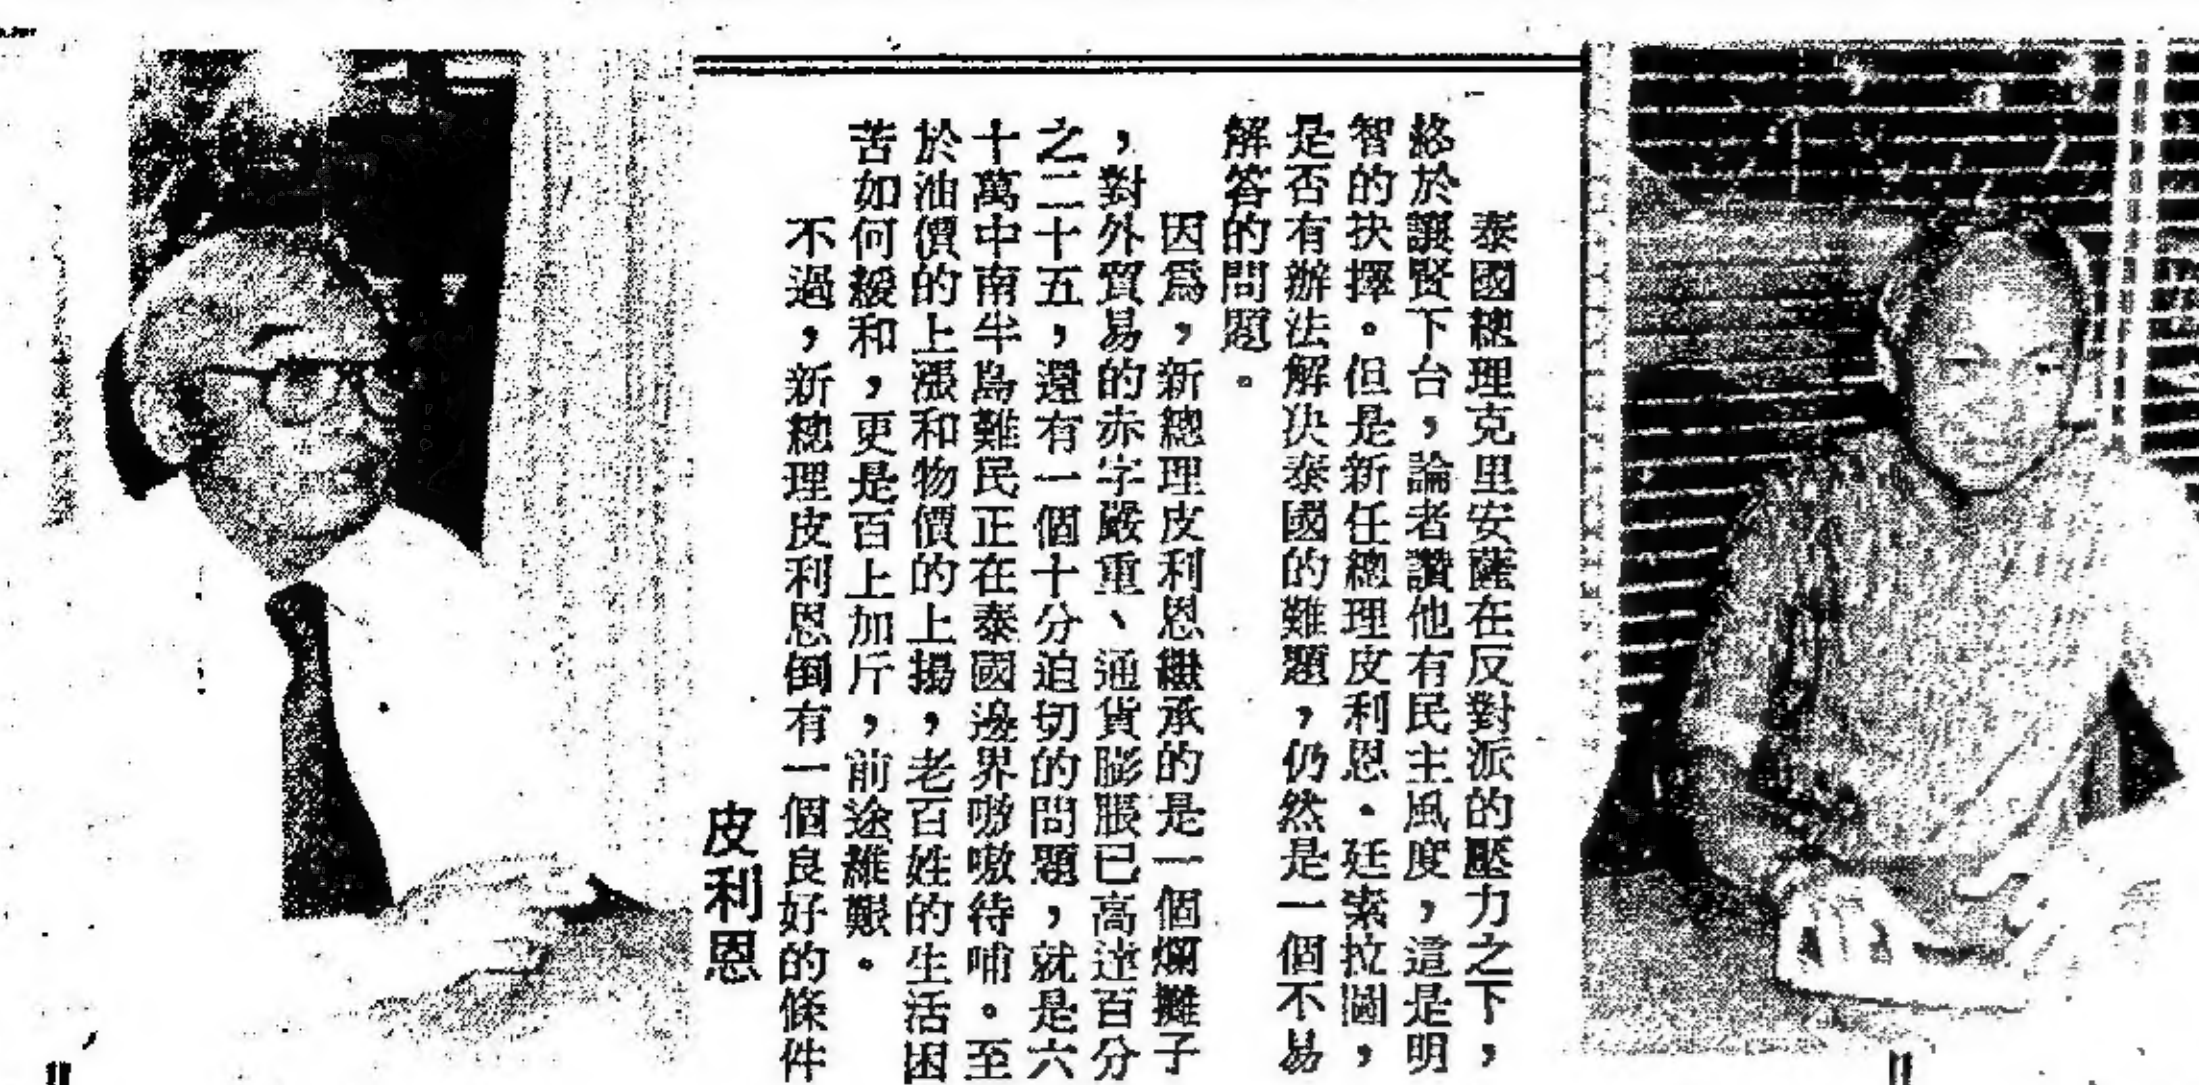 泰國總理克里安薩在反對派的壓力之下，
終於讓賢下台，論者讚他有民主風度，這是明
智的抉擇。但是新任總理皮利恩·廷索拉圖，
是否有辦法解決泰國的難題，仍然是一個不易
解答的問題。
因爲，新總理皮利恩繼承的是一個爛攤子
，對外貿易的赤字嚴重、通貨膨脹已高達百分
之二十五，還有一個十分迫切的問題，就是六
十萬中南半島難民正在泰國邊界嗷嗷待哺。至
於油價的上漲和物價的上揚，老百姓的生活困
苦如何緩和，更是百上加斤，前途維艱。
不過，新總理皮利恩倒有一個良好的條件
皮利恩